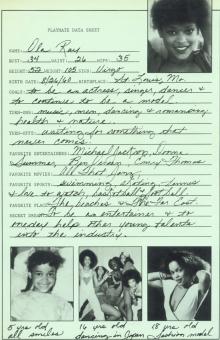 PLAYMATE DATA SHEET
NAME: Ola Ray
BUST: 34 WAIST: 26 HIPS: 35
HEIGHT: 5'2 WEIGHT: 105 SIGN: Virgo
BIRTH DATE: 8/26/60 BIRTHPLACE: St. Louis, Mo.
GOALS: to be an actress, singer, dancer &
to continue to be a model.
TURN-ONS: music, men, dancing & romancing,
health & nature
TURN-OFFS: waiting for something that
never comes.
FAVORITE ENTERTAINERS: Michael Jackson, Donna
Summer,
FAVORITE MOVIES: All That Jazz.
FAVORITE SPORTS: swimming, skating, tennis
& love to watch basketball & football
FAVORITE PLACES: The beaches & The Far East.
SECRET DREAM: To be an entertainer & to
someday help other young talents
into the industry.
5 years old 16 years old 18 years old
all smiles dancing in Japan fashion model